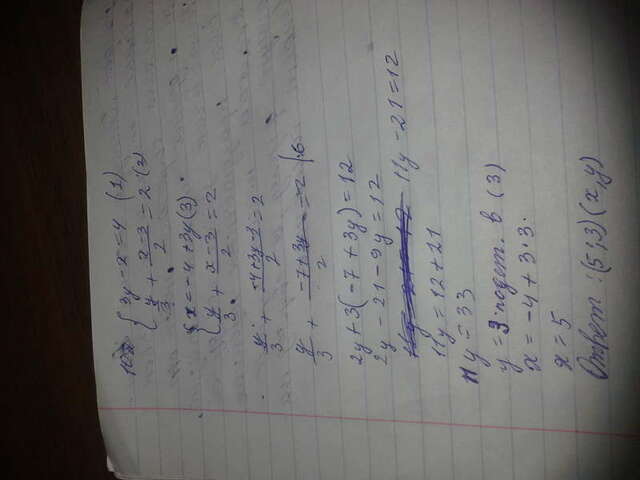 {3y - x = 4 (1)
y/3 + (x-3)/2 = 2 (2)
{x = -4 + 3y (3)
y/3 + (x-3)/2 = 2
y/3 + (-4+3y-3)/2 = 2
y/3 + (-7+3y)/2 = 2 |·6
2y + 3(-7 + 3y) = 12
2y - 21 - 9y = 12
11y - 21 = 12
11y = 12 + 21
11y = 33
y = 3 подст. в (3)
x = -4 + 3·3.
x = 5
Ответ: (5;3) (x,y)